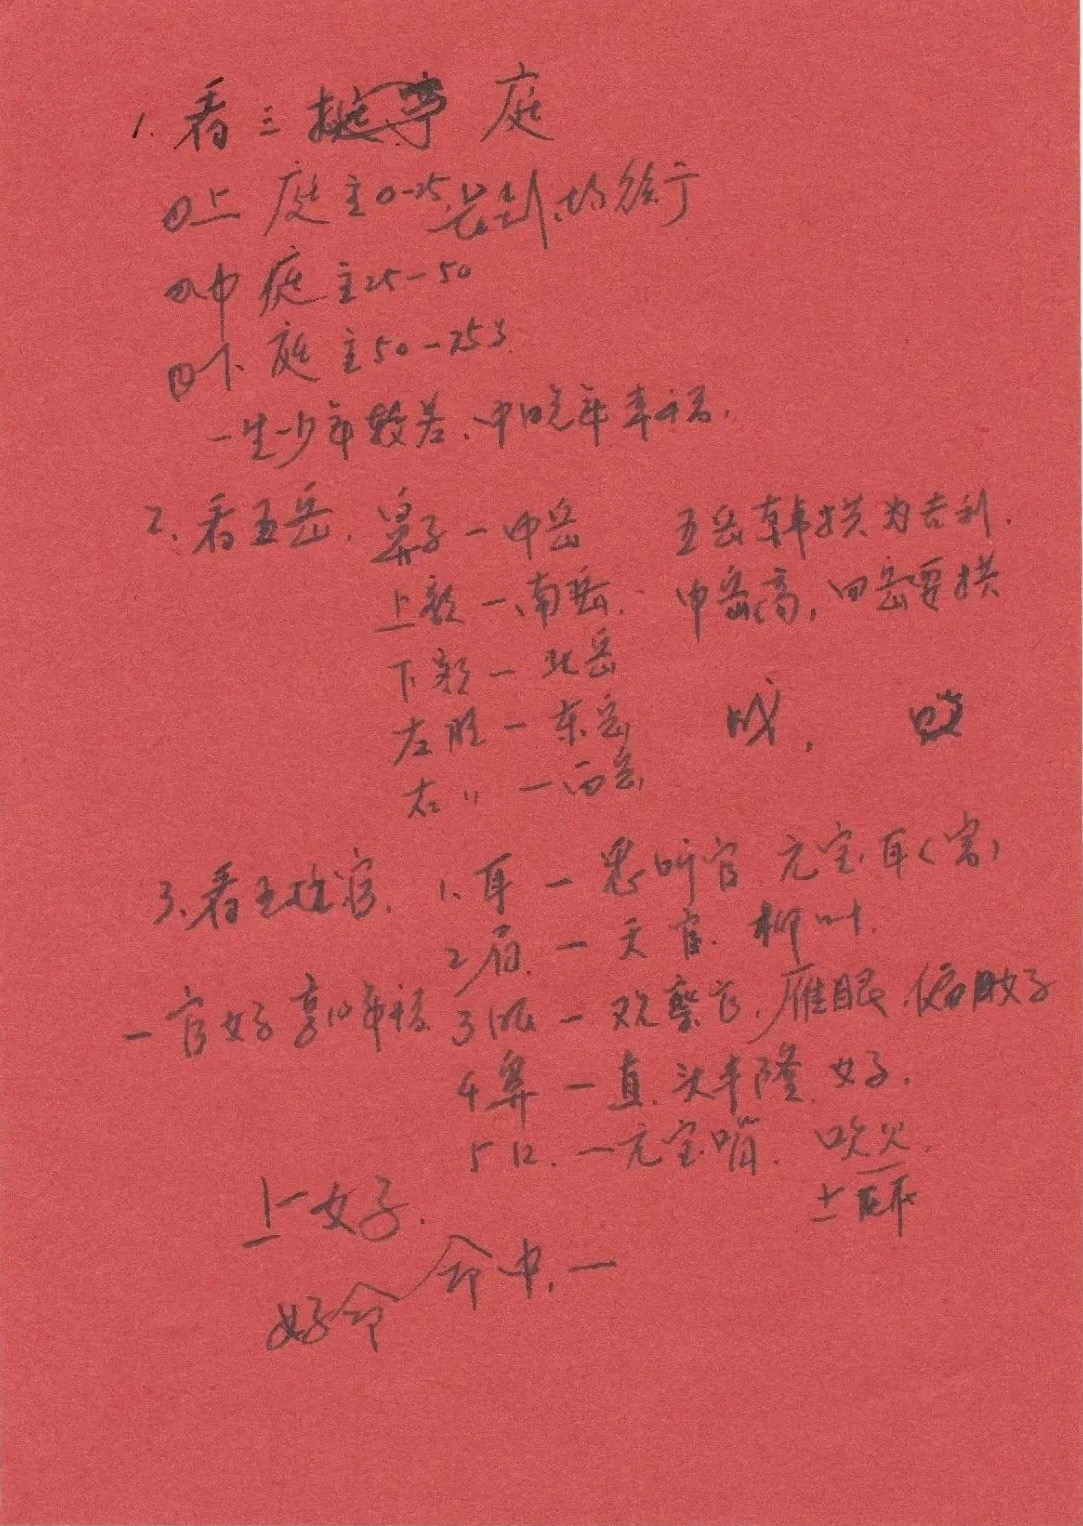 1. 看三庭
①上庭主0-25
②中庭主25-50
③下庭主50-75岁
一生少年较苦、中晚年幸福.
2. 看五岳. 鼻子-中岳 五岳朝拱为吉利.
上颏-南岳. 中岳高, 四岳要拱
下颏-北岳
左脸-东岳
右〃-西岳
3. 看五官. 1. 耳-听官 元宝耳(富)
2 眉.-天官. 柳叶.
一官好享10年福 3 眼-观察官. 雁眼.
4 鼻-直. 头丰隆. 好.
5 口.-元宝嘴. 吹火.
上 好.
好命 命中.一